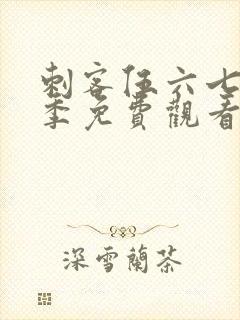 刺客伍六七
季免費觀看
深雪蘭茶